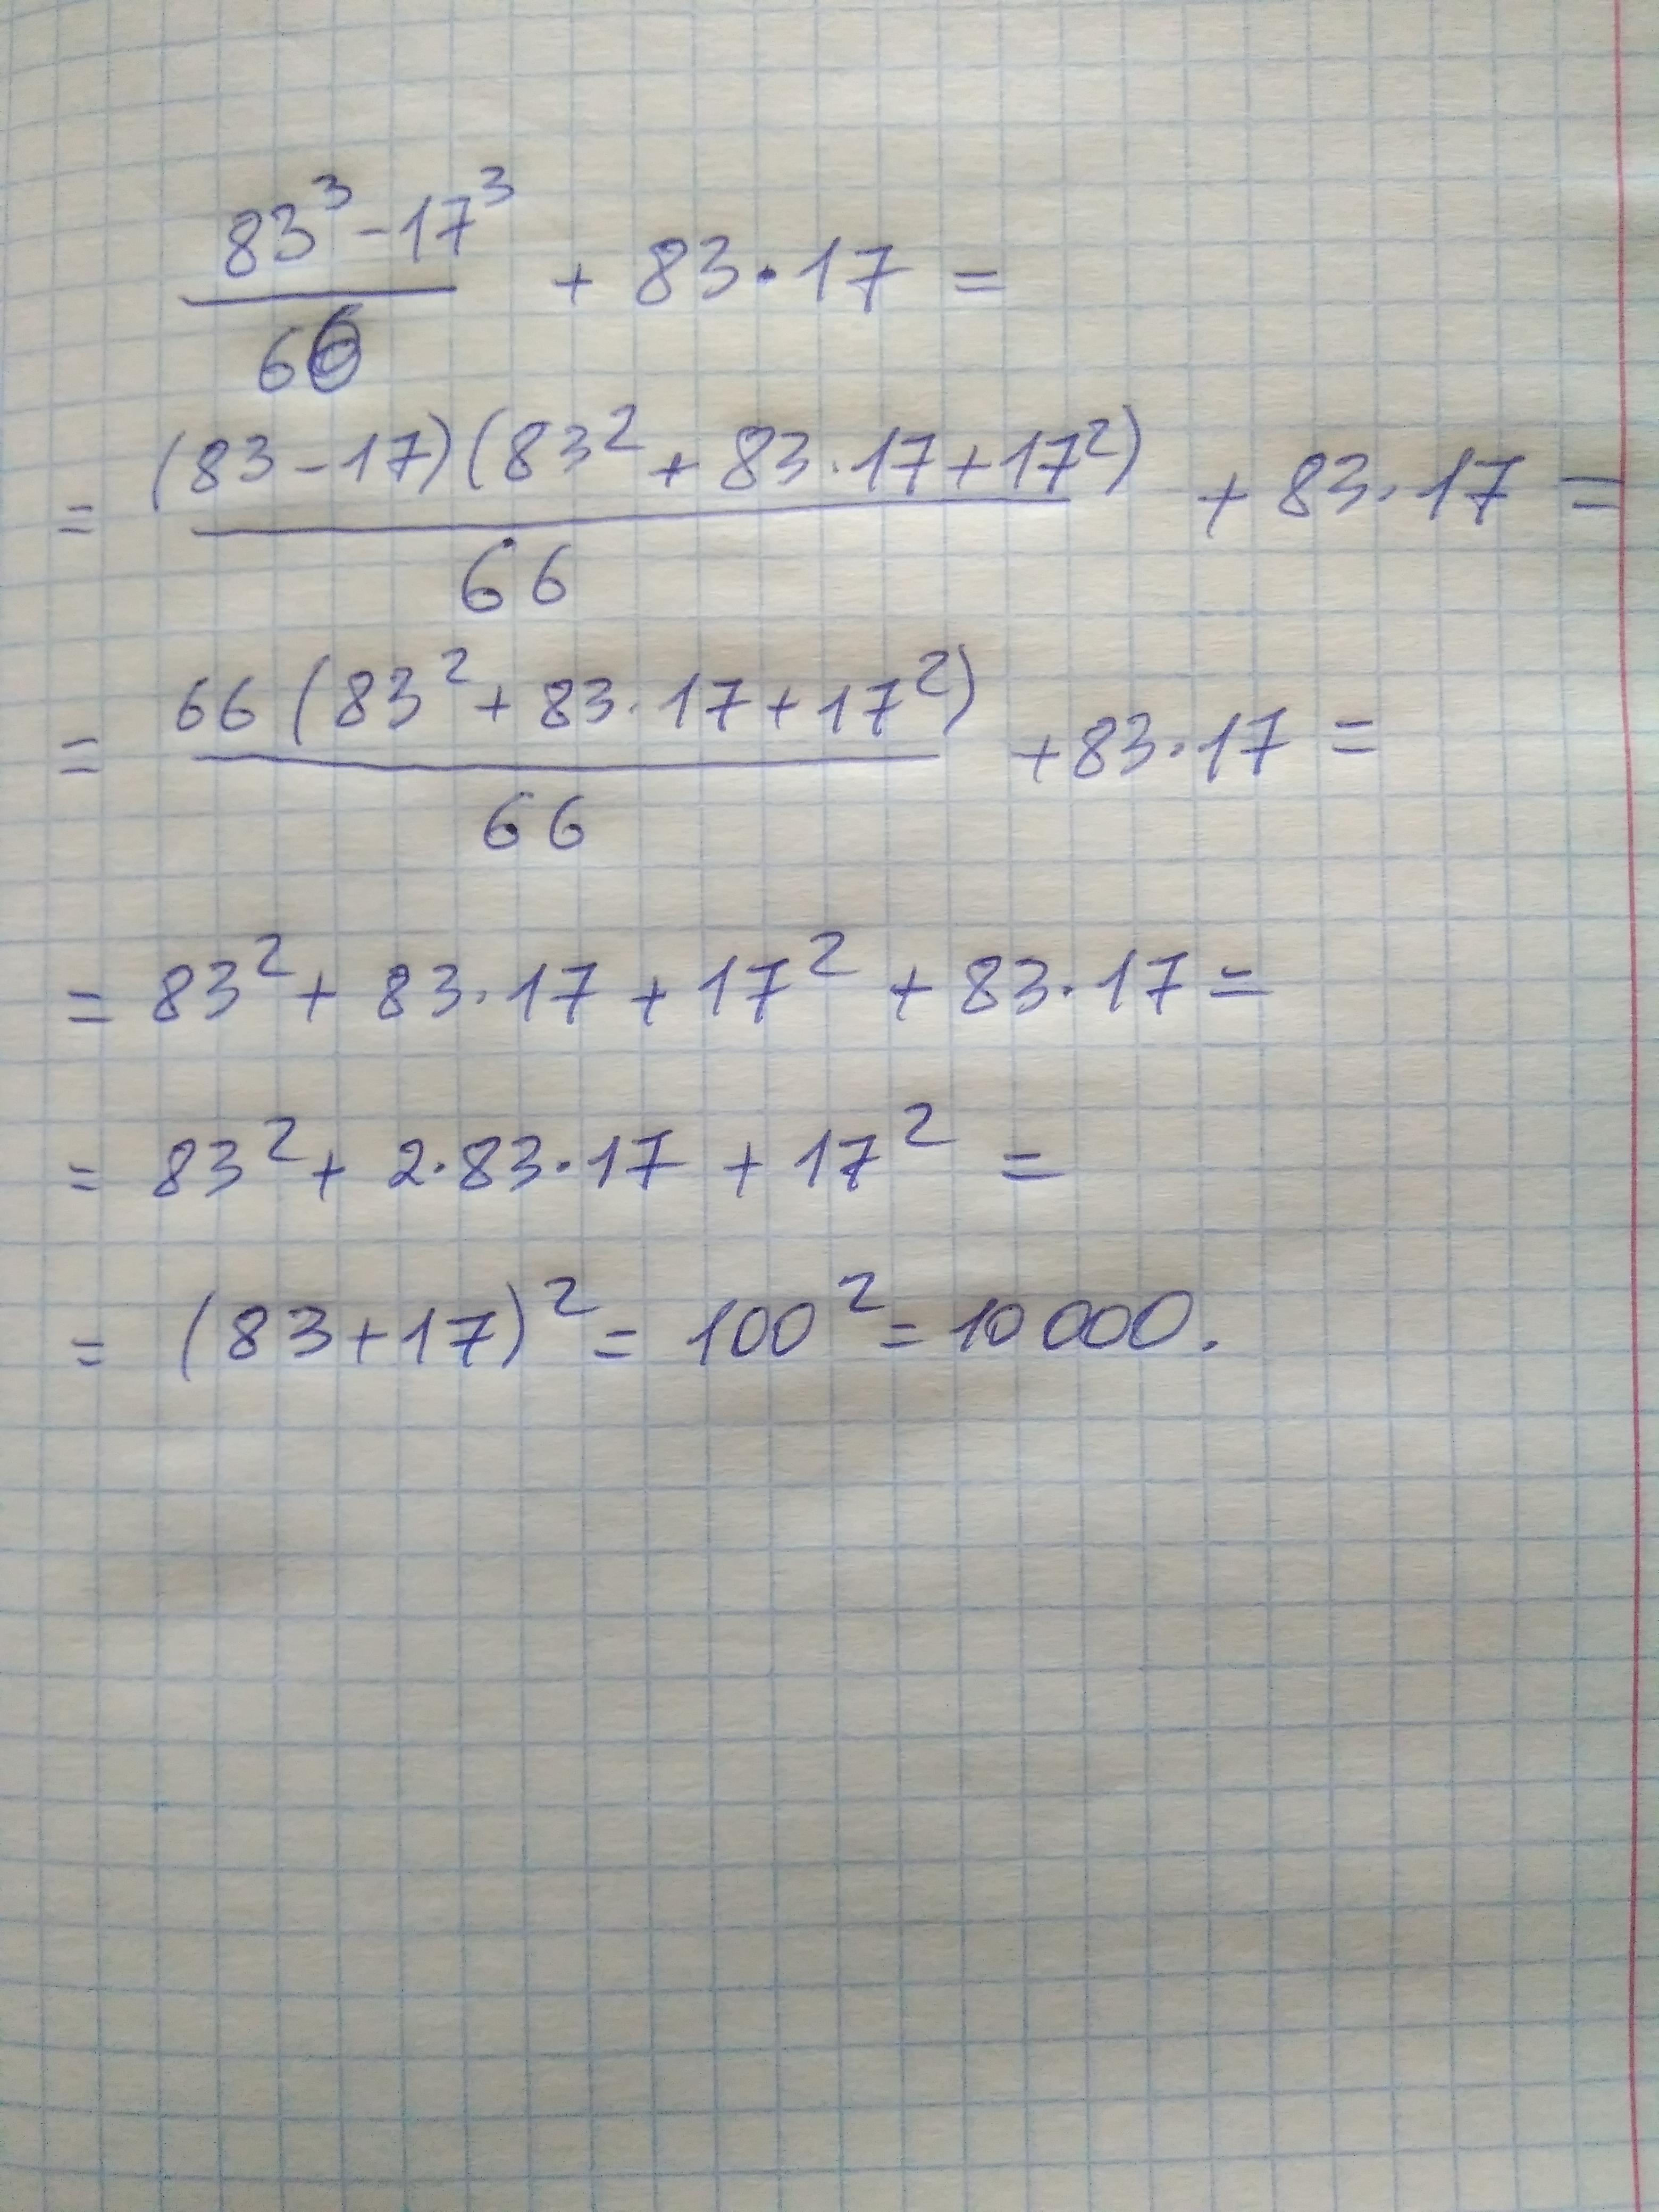 83³ - 17³
66 + 83 · 17 =
= (83 - 17)(83² + 83 · 17 + 17²) + 83 · 17 =
66
= 66 (83² + 83 · 17 + 17²) + 83 · 17 =
66
= 83² + 83 · 17 + 17² + 83 · 17 =
= 83² + 2 · 83 · 17 + 17² =
= (83 + 17)² = 100² = 10 000.